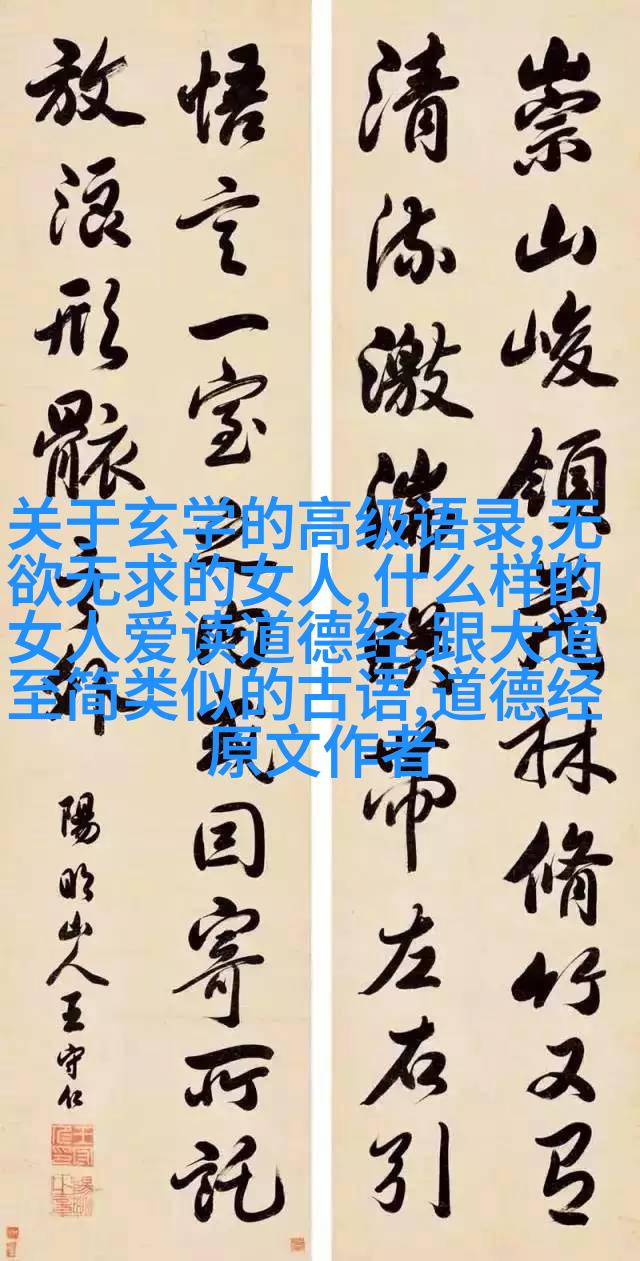 崇山峻領茂林脩竹又有
清流激湍暎帶左右引
悟言一室之內或因寄所託
放浪形骸之外
陽明山人王守仁
关于玄学的高级语录,无
欲无求的女人,什么样的
女人爱读道德经,跟大道
至简类似的古语,道德经
原文作者